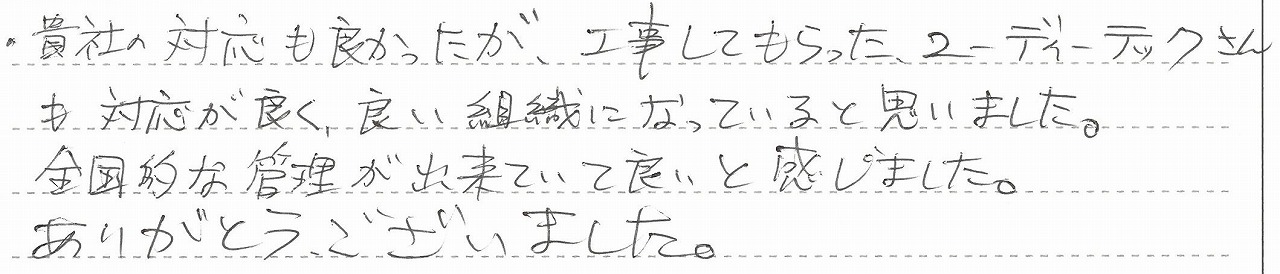 ・貴社の対応も良かったが、工事してもらった、ユーディーテックさん
も対応が良く、良い組織になっていると思いました。
全国的な管理が出来ていて良いと感じました。
ありがとうございました。